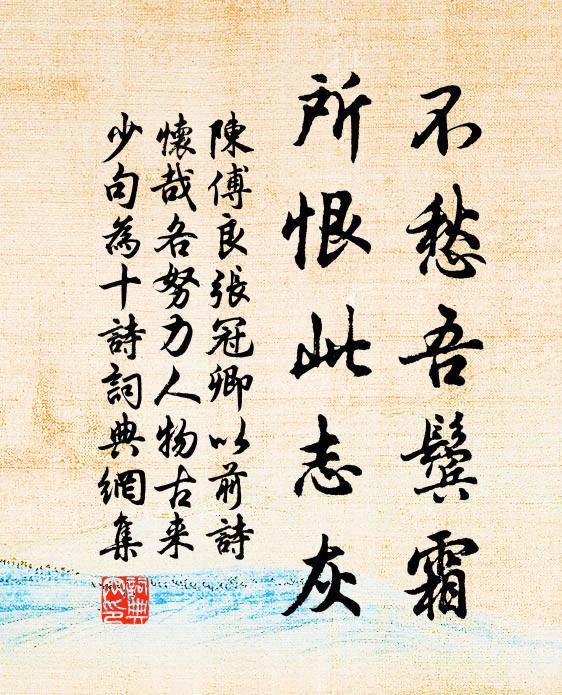 不愁吾鬓霜
所恨此志灰
陳傅良張冠卿以前詩
懷哉各努力人物古来
少句為十詩詞典網集